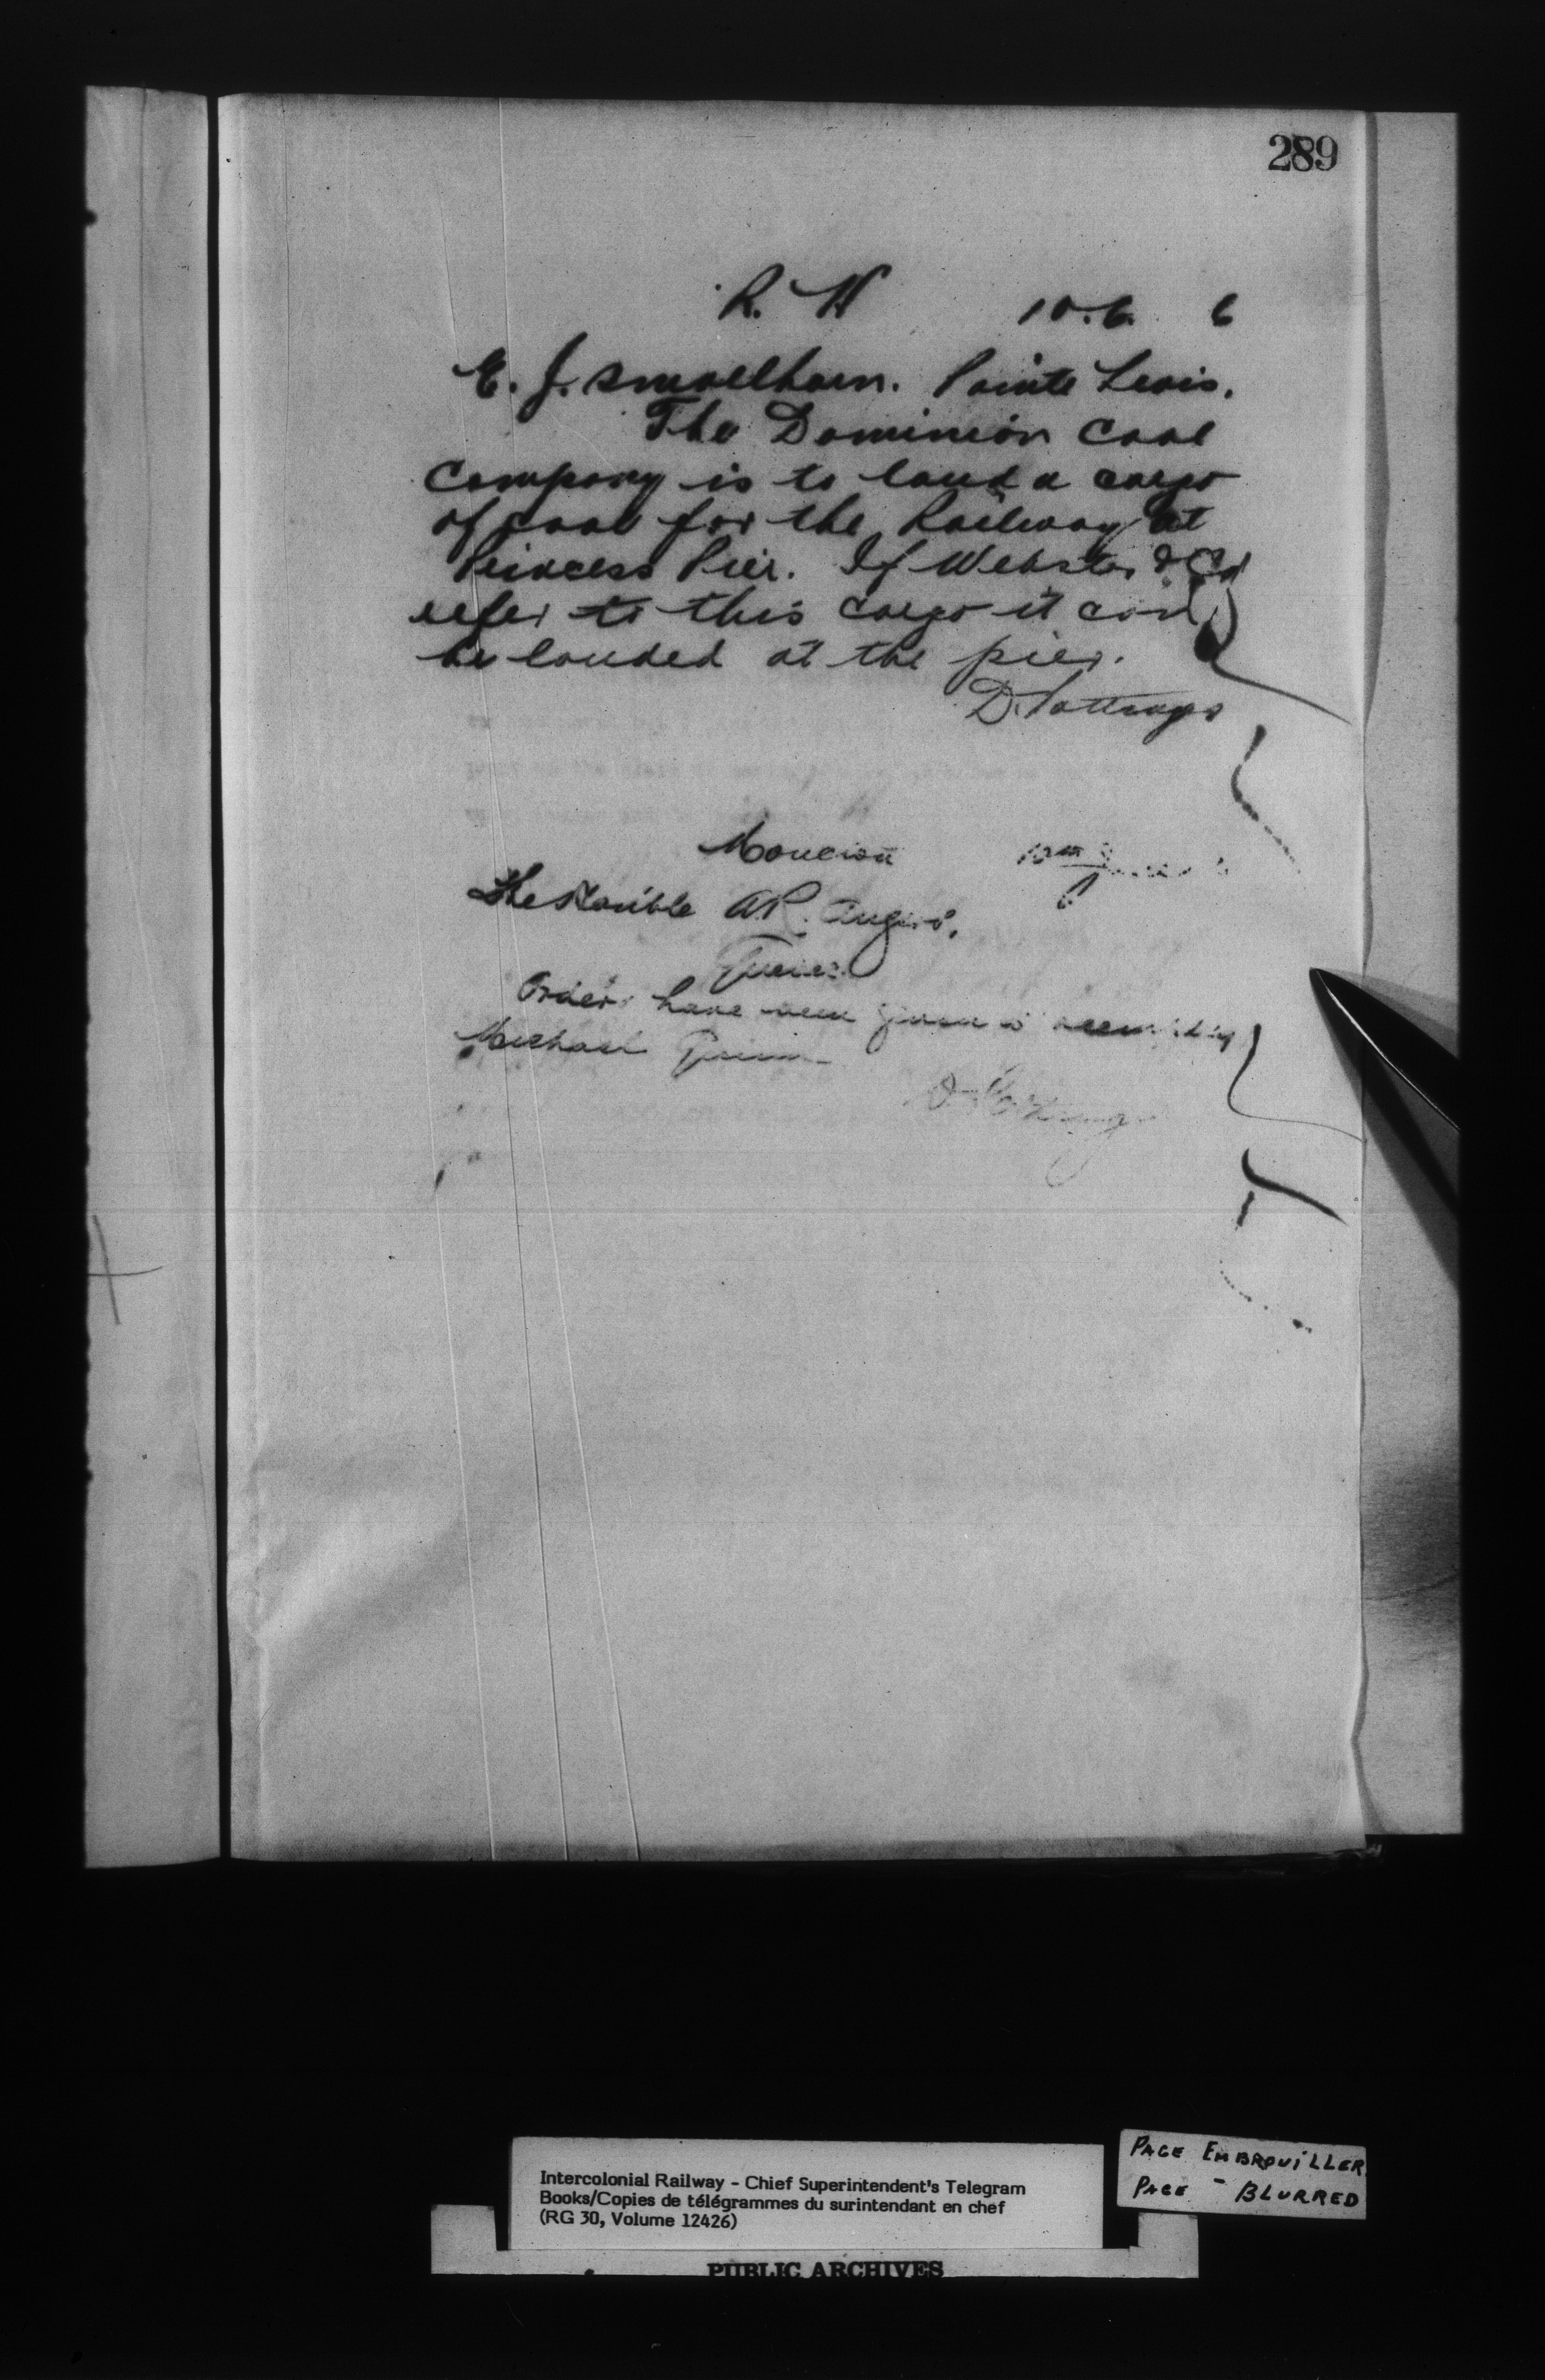 289
R. H 10.6. 6
E. J. Smallhorn. Pointe Levis.
The Dominion Coal
Company is to land a cargo
of coal for the Railway at
Princess Pier. If Webster & Co
refer to this cargo it can
be landed at the pier.
D. Pottinger
Moncton 10th
The Honible A.R. Angers,
Orders have been given
Michael
D. Pottinger
Intercolonial Railway - Chief Superintendent's Telegram
Books/Copies de télégrammes du surintendant en chef
(RG 30, Volume 12426)
PUBLIC ARCHIVES
PAGE EMBROUILLER
PAGE - BLURRED